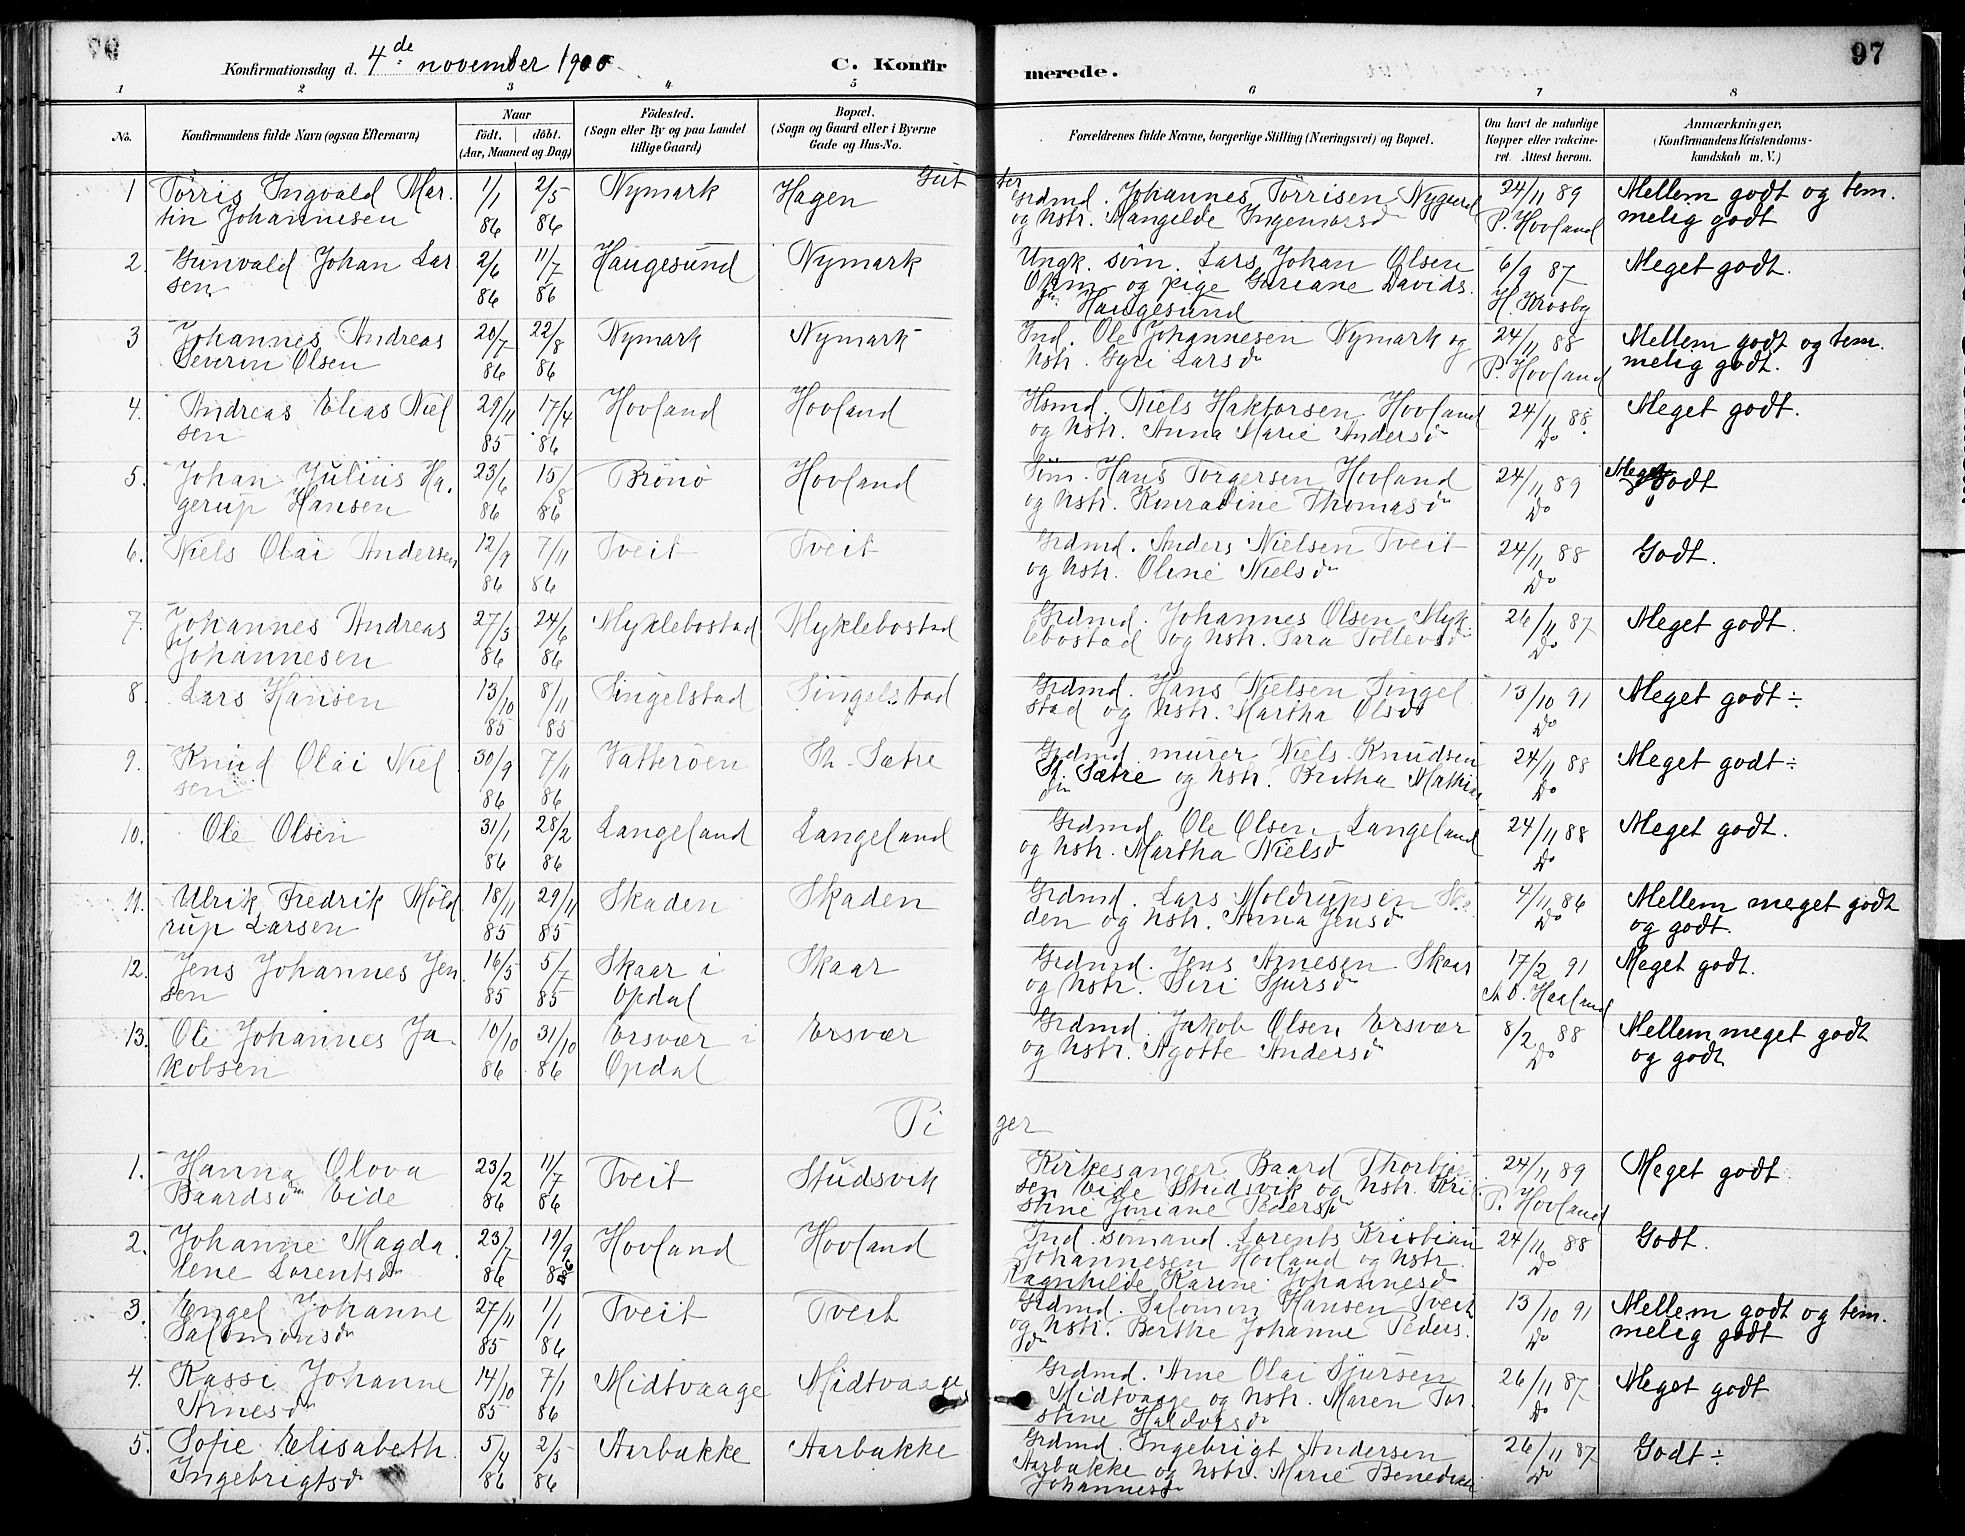 97
Konfirmationsdag d. 4de november 1900 C. Konfirmerede.
1 2 3 4 5 6 7 8
No. Konfirmandens fulde Navn (ogsaa Efternavn) Naar født. døbt. (Aar, Maaned og Dag) Fødested. (Sogn eller By og paa Landet tillige Gaard) Bopæl. (Sogn og Gaard eller i Byerne Gade og Hus-No. Forældrenes fulde Navne, borgerlige Stilling (Næringsvei) og Bopæl. Om havt de naturlige Kopper eller vakcineret. Attest herom. Anmærkninger, (Konfirmandens Kristendomskundskab m. V.)
Gut ter
1 Tørris Ingvald Mar- 1/1 2/5 Nymark Hagen Grdmd. Johannes Tørrisen Nygaard 24/11 89 Mellem godt og tem.
tin Johannesen 86 86 og hstr. Mangelde Ingemarsd P. Hovland melig godt
2. Gunvald Johan Lar 2/6 11/7 Haugesund Nymark Ungk. søm. Lars Johan Olsen 6/9 87 Meget godt.
sen 86 86 og pige Guriane Davids. H. Krosby
dn Haugesund
3 Johannes Andreas 20/7 22/8 Nymark Nymark Ind. Ole Johannesen Nymark og 24/11 88 Mellem godt og tem.
Severin Olsen 86 86 hstr. Gyri Larsdn P. Hovland melig godt.
4. Andreas Elias Niel 29/11 17/4 Hovland Hovland Hsmd. Niels Haktorsen Hovland 24/11 88 Meget godt.
sen 85 86 og hstr. Anna Marie Andersd Do
5. Johan Julius Ha. 23/6 15/8 Brønø Hovland Søm. Hans Torgersen Hovland 24/11 89 Meget godt
gerup Hansen 86 86 og hstr. Konradine Thomasdn Do
6. Niels Olai Andersen 12/9 7/11 Tveit Tveit Grdmd. Anders Nielsen Tveit 24/11 88 Godt.
86 86 og hstr. Oline Nielsdn Do
7. Johannes Andreas 27/5 24/6 Myklebostad Myklebostad Grdmd. Johannes Olsen Myk. 26/11 87 Meget godt.
Johannesen 86 86 lebostad og hstr. Sara Tollevsd Do
8. Lars Hansen 13/10 8/11 Singelstad Singelstad Grdmd. Hans Nielsen Singel 13/10 91 Meget godt ÷
85 85 stad og hstr. Martha Olsd Do
9. Knud Olai Niel 30/9 7/11 Vatterøen St. Sætre Grdmd. murer Niels Knudsen 24/11 88 Meget godt ÷
sen 86 86 St. Sætre og hstr. Britha Mathias Do
dn
10. Ole Olsen 31/1 28/2 Langeland Langeland Grdmd. Ole Olsen Langeland 24/11 88 Meget godt.
86 86 og hstr. Martha Nielsd Do
11. Ulrik Fredrik Möld 18/11 29/11 Skaden Skaden Grdmd. Lars Moldrupsen Ska 4/11 86 Mellem meget godt
rup Larsen 85 85 den og hstr. Anna Jensd Do og godt.
12. Jens Johannes Jen 16/5 5/7 Skaar i Skaar Grdmd. Jens Arnesen Skaar 17/2 91 Meget godt.
sen 85 85 Opdal og hstr. Siri Sjursdn A. O. Haaland
13. Ole Johannes Ja- 10/10 31/10 Ersvær i Ersvær Grdmd. Jakob Olsen Ersvær 8/2 88 Mellem meget godt
kobsen 86 86 Opdal og hstr. Agotte Andersd Do og godt
Pi ger
1. Hanna Olova 23/2 11/7 Tveit Studsvik Kirkesanger Baard Thorbjø 24/11 89 Meget godt
Baardsdn Eide 86 86 sen Eide Studsvik og hstr. Kri P. Hovland
stine Joriane Pedersdn
2. Johanne Magda 23/7 19/9 Hovland Hovland Ind. sømand. Lorents Kristian 24/11 88 Godt.
lene Lorentsdn 86 86 Johannesen Hovland og hstr. Do
Ragnhilde Karine Johannesd
3. Engel Johanne 27/11 1/1 Tveit Tveit Grdmd. Salomon Hansen Tveit 13/10 91 Mellem godt og tem.
Salomonsdn 85 86 og hstr. Berthe Johanne Peders. Do melig godt
dn
4. Kassi Johanne 14/10 7/1 Midtvaage Midtvaage Grdmd. Arne Olai Sjursen 26/11 87 Meget godt
Arnesdn 85 86 Midtvaage og hstr. Maren Tor. Do
stine Haldorsdn
5. Sofie Elisabeth 5/4 2/5 Aarbakke Aarbakke Grdmd. Ingebrigt Andersen 26/11 87 Godt ÷
Ingebrigtsd 86 86 Aarbakke og hstr. Marie Benedikte Do
Johannesd